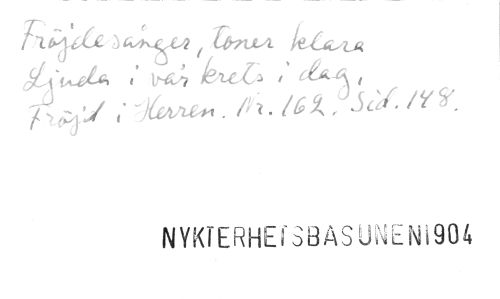 Fröjdesånger, toner klara
Ljuda i vår krets i dag.
Fröjd i Herren. Nr. 162. Sid. 148.
NYKTERHETSBASUNEN1904